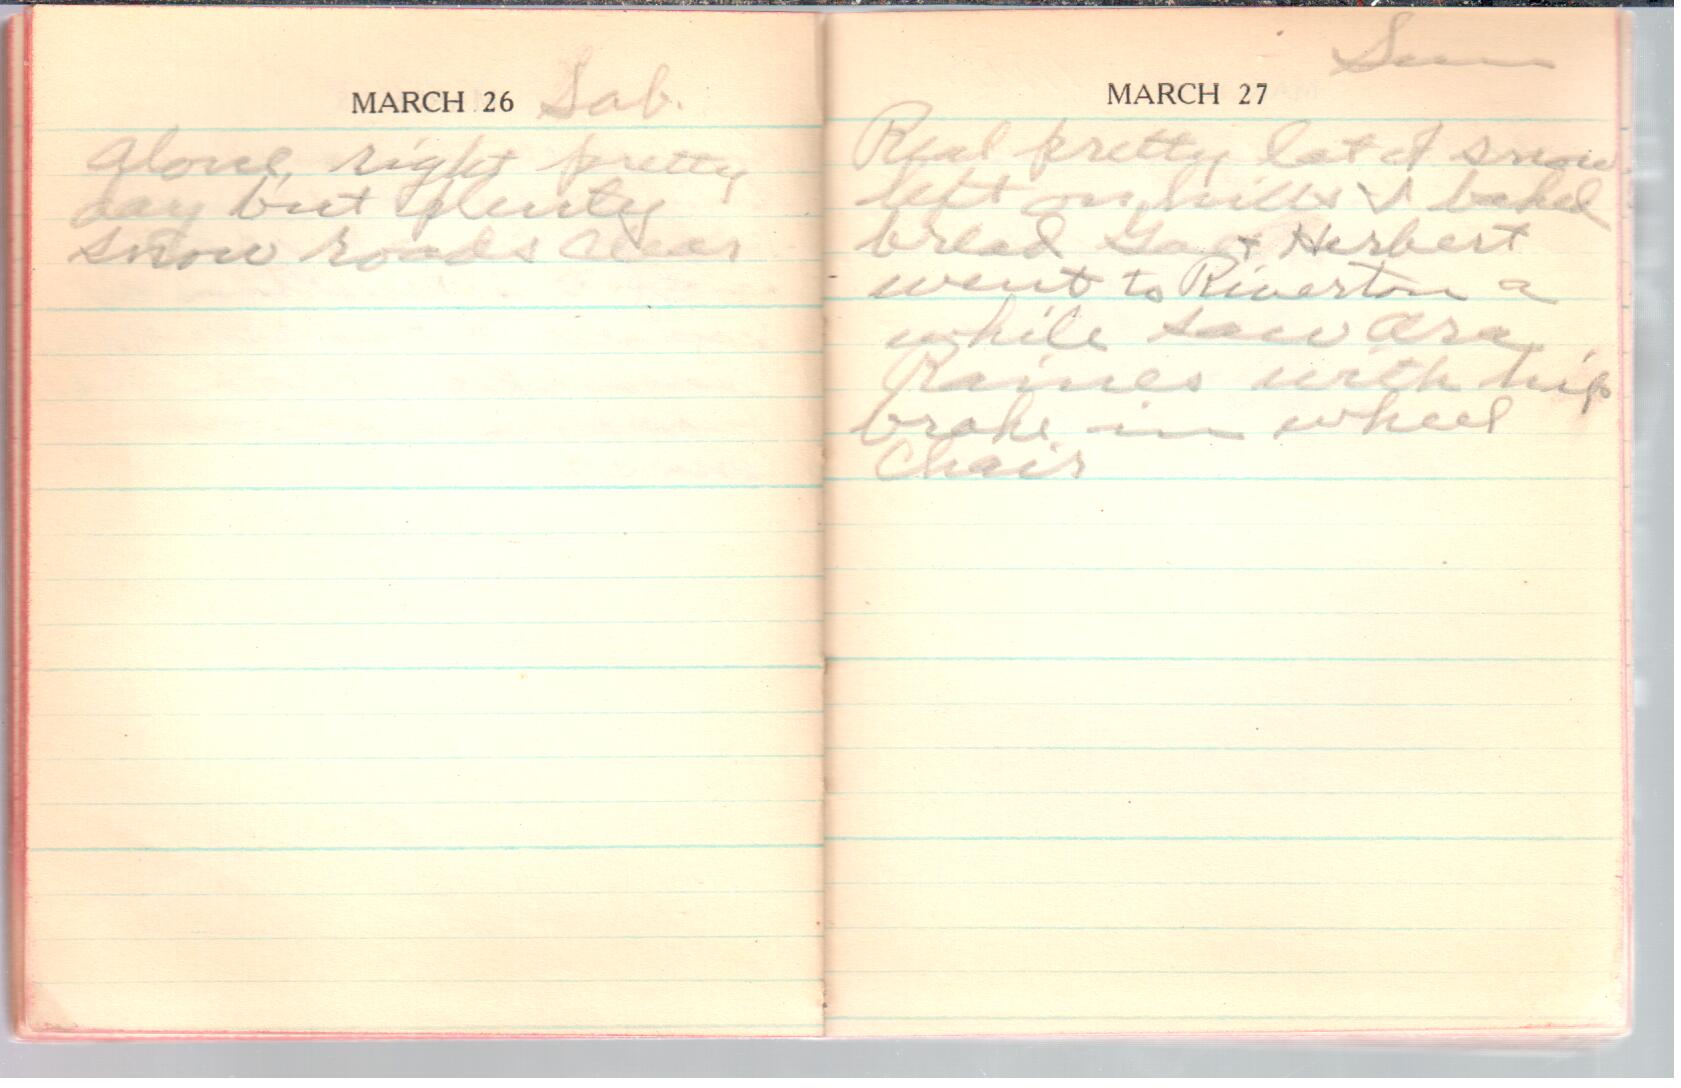 MARCH 26 Sab.
Alone, right pretty
day but plenty
snow roads clear
Sun
MARCH 27
Real pretty lot of snow
left on hills I baked
bread Ga + Herbert
went to Riverton a
while saw Ora
Raines with hip
broke in wheel
Chair